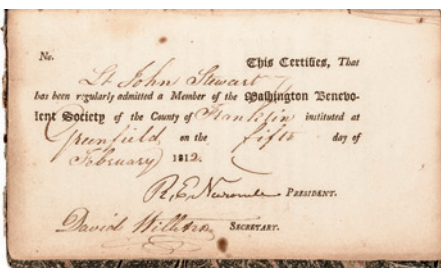 No. This Certifies, That
Lt John Stewart
has been regularly admitted a Member of the Washington Benevo-
lent Society of the County of Franklin instituted at
Greenfield, on the fifth day of
February 1812.
R. E. Newcomb PRESIDENT.
David Willard, SECRETARY.